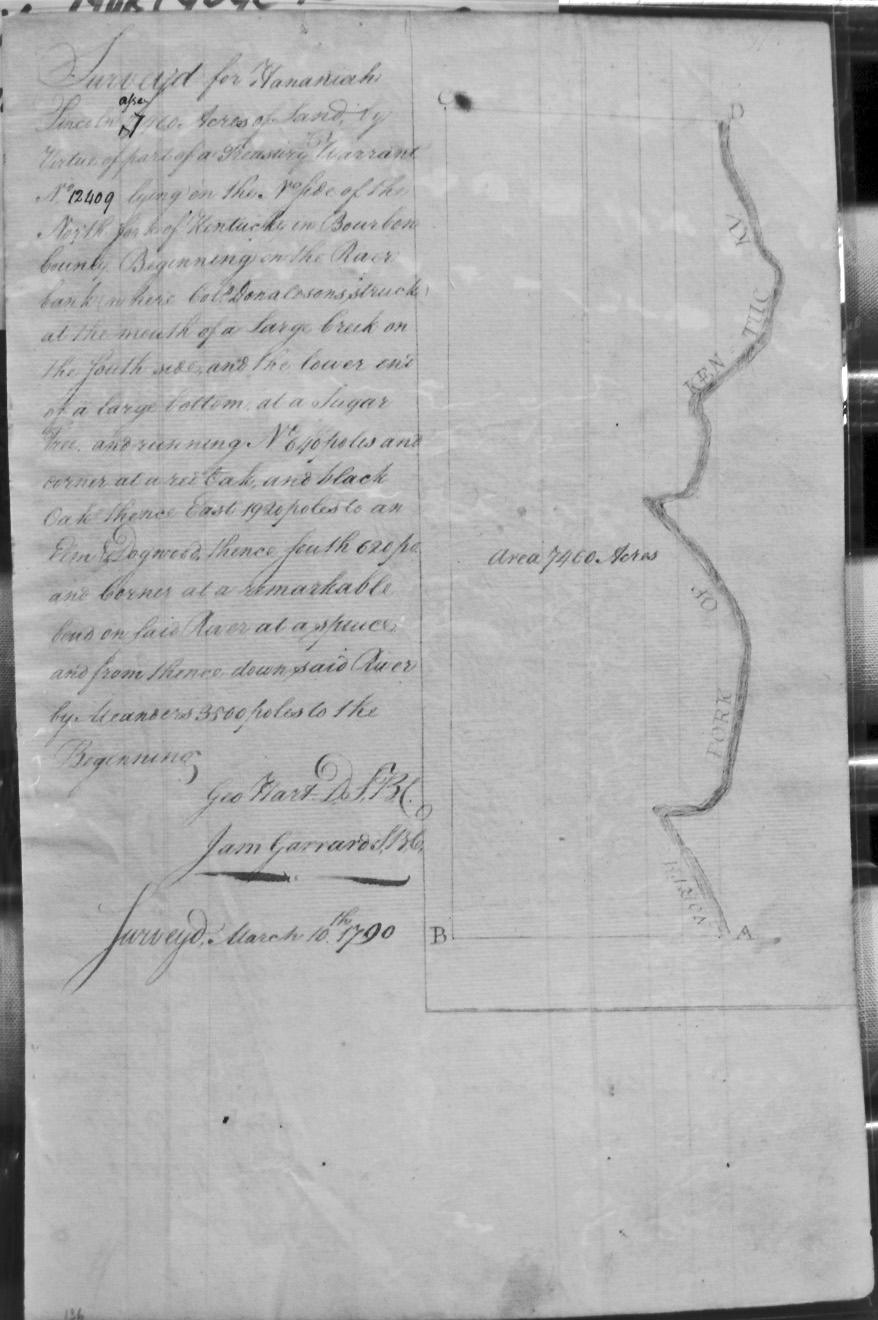 Surveyd for Hananiah
Lincoln 7460 Acres of Land, by
Virtue of part of a Treasury Warrant
No 12409 lying on the No side of the
North fork of Kentucke in Bourbon
County Beginning on the River
bank where Colo Donaldsons struck
at the mouth of a large Creek on
the South side, and the lower end
of a large bottom, at a Sugar
Tree, and running No 640 poles and
corner at a red Oak, and black
Oak thence East 1920 poles to an
Elm & Dogwood, thence South 620 po.
and Corner at a remarkable
bend on said River at a spruce
and from thence down said River
by Meanders 3500 poles to the
Beginning
Geo Hart D. S. B C.
Jam Garrard S. B. C.
Surveyd, March 10th 1790
C
D
KEN TUC KY
Area 7460 Acres
OF
FORK
NORTH
B
A